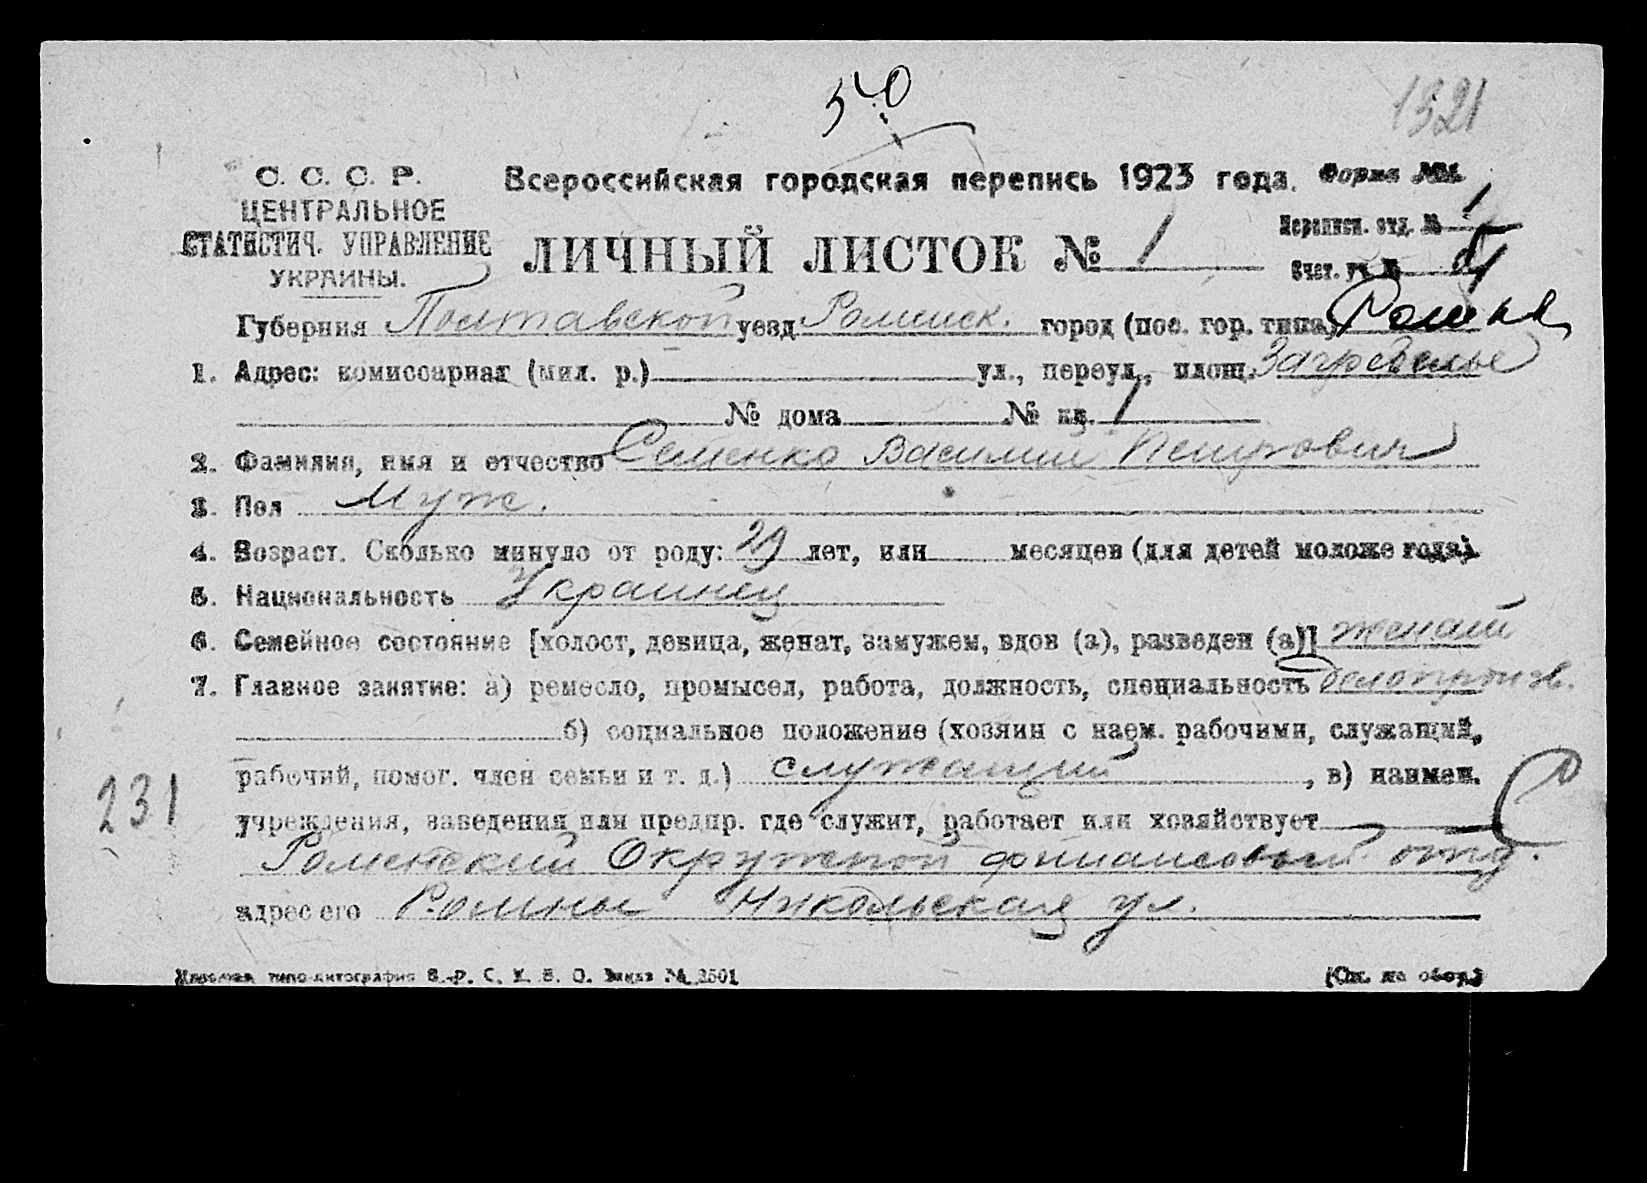 50
1321
С. С. С. Р.
ЦЕНТРАЛЬНОЕ
СТАТИСТИЧ. УПРАВЛЕНИЕ
УКРАИНЫ.
Всероссийская городская перепись 1923 года. Форма №1.
ЛИЧНЫЙ ЛИСТОК № 1
Переписн. отд. № 1
Счет. уч. №
Губерния Полтавской уезд Роменск. город (пос. гор. типа) Ромны
1. Адрес: комиссариат (мил. р.) ул., переул., площ.
№ дома № кв. 1
2. Фамилия, имя и отчество Семенко Василий Петрович
3. Пол Муж.
4. Возраст. Сколько минуло от роду: 29 лет, или месяцев (для детей моложе года)
5. Национальность Украинец
6. Семейное состояние [холост, девица, женат, замужем, вдов (а), разведен (а)] женат
7. Главное занятие: а) ремесло, промысел, работа, должность, специальность делопроизв.
б) социальное положение (хозяин с наем. рабочими, служащий,
рабочий, помог. член семьи и т. д.) служащий, в) наимен.
231
учреждения, заведения или предпр. где служит, работает или хозяйствует
Роменский Окружной финансовый отд.
адрес его Ромны Никольская ул.
типо-литография В.-Р. С. Заказ № 2501
(См. на обор.)